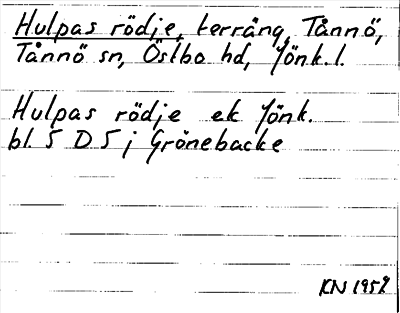 Hulpas rödje, terräng, Tånnö,
Tånnö sn, Östbo hd, Jönk.l.
Hulpas rödje ek Jönk.
bl. 5 D 5 j Grönebacke
KN 1959